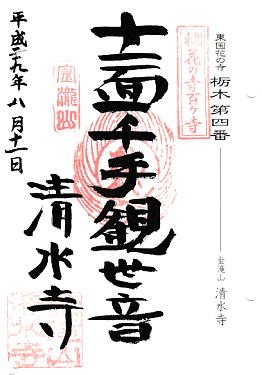 東国花の寺 栃木 第四番
金滝山 清水寺
東国花の寺百ヶ寺
十一面千手観世音
清水寺
平成二九年八月十一日